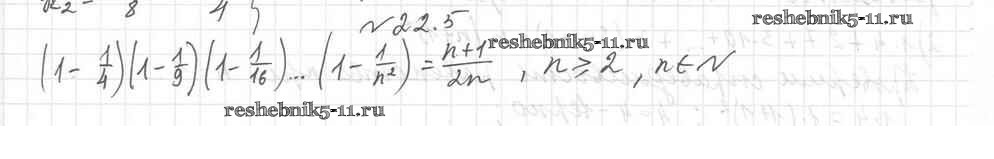 №22.5
reshebnik5-11.ru
(1 - 1/4)(1 - 1/9)(1 - 1/16)...(1 - 1/n²) = (n+1)/2n , n ≥ 2 , n ∈ N
reshebnik5-11.ru
reshebnik5-11.ru